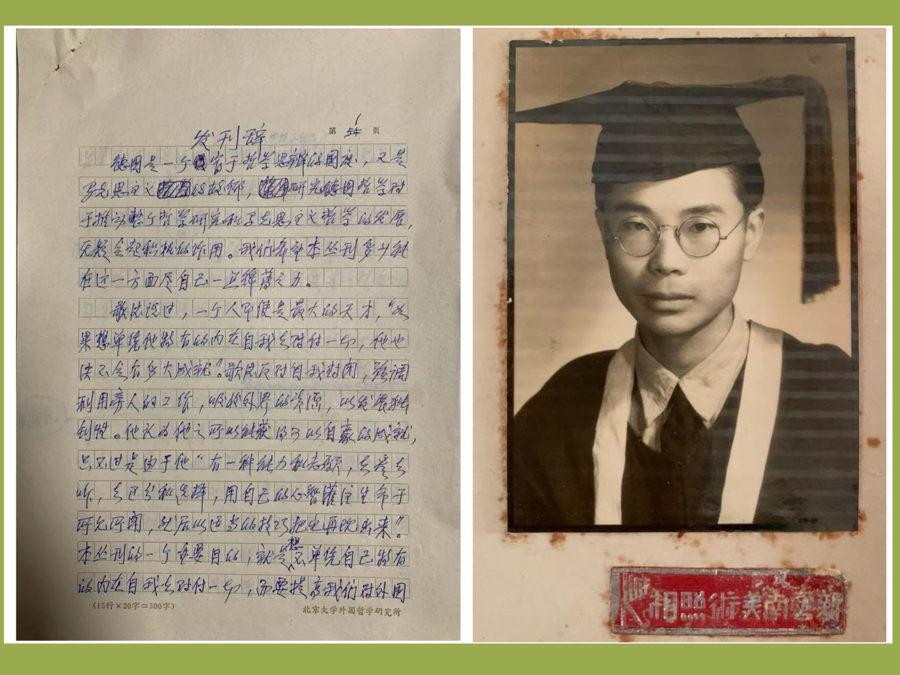 发刊辞
第 54 页
德国是一个富于哲学思辨的国家，又是
马克思主义的故乡，研究德国哲学对
于推动整个哲学研究和马克思主义哲学的发展，
无疑会起积极的作用。我们希望本丛刊多少能
在这一方面尽自己一点绵薄之力。
歌德说过，一个人即使是最大的天才，“如
果想单凭他特有的内在自我去对付一切，他也
决不会有多大成就”。歌德反对自我封闭，强调
利用旁人的工作，吸收外界的资源，以发展独
创性。他认为他之所以能获得可以自豪的成就，
只不过是由于他“有一种能力和志愿，去看去
听，去区分和选择，用自己的心智灌注生命于
所见所闻，然后以适当的技巧把它再现出来”。
本丛刊的一个重要目的，就是想不单凭自己特有
的内在自我去对付一切，而要提高我们对外国
(15行×20字=300字)
北京大学外国哲学研究所
南美術照相